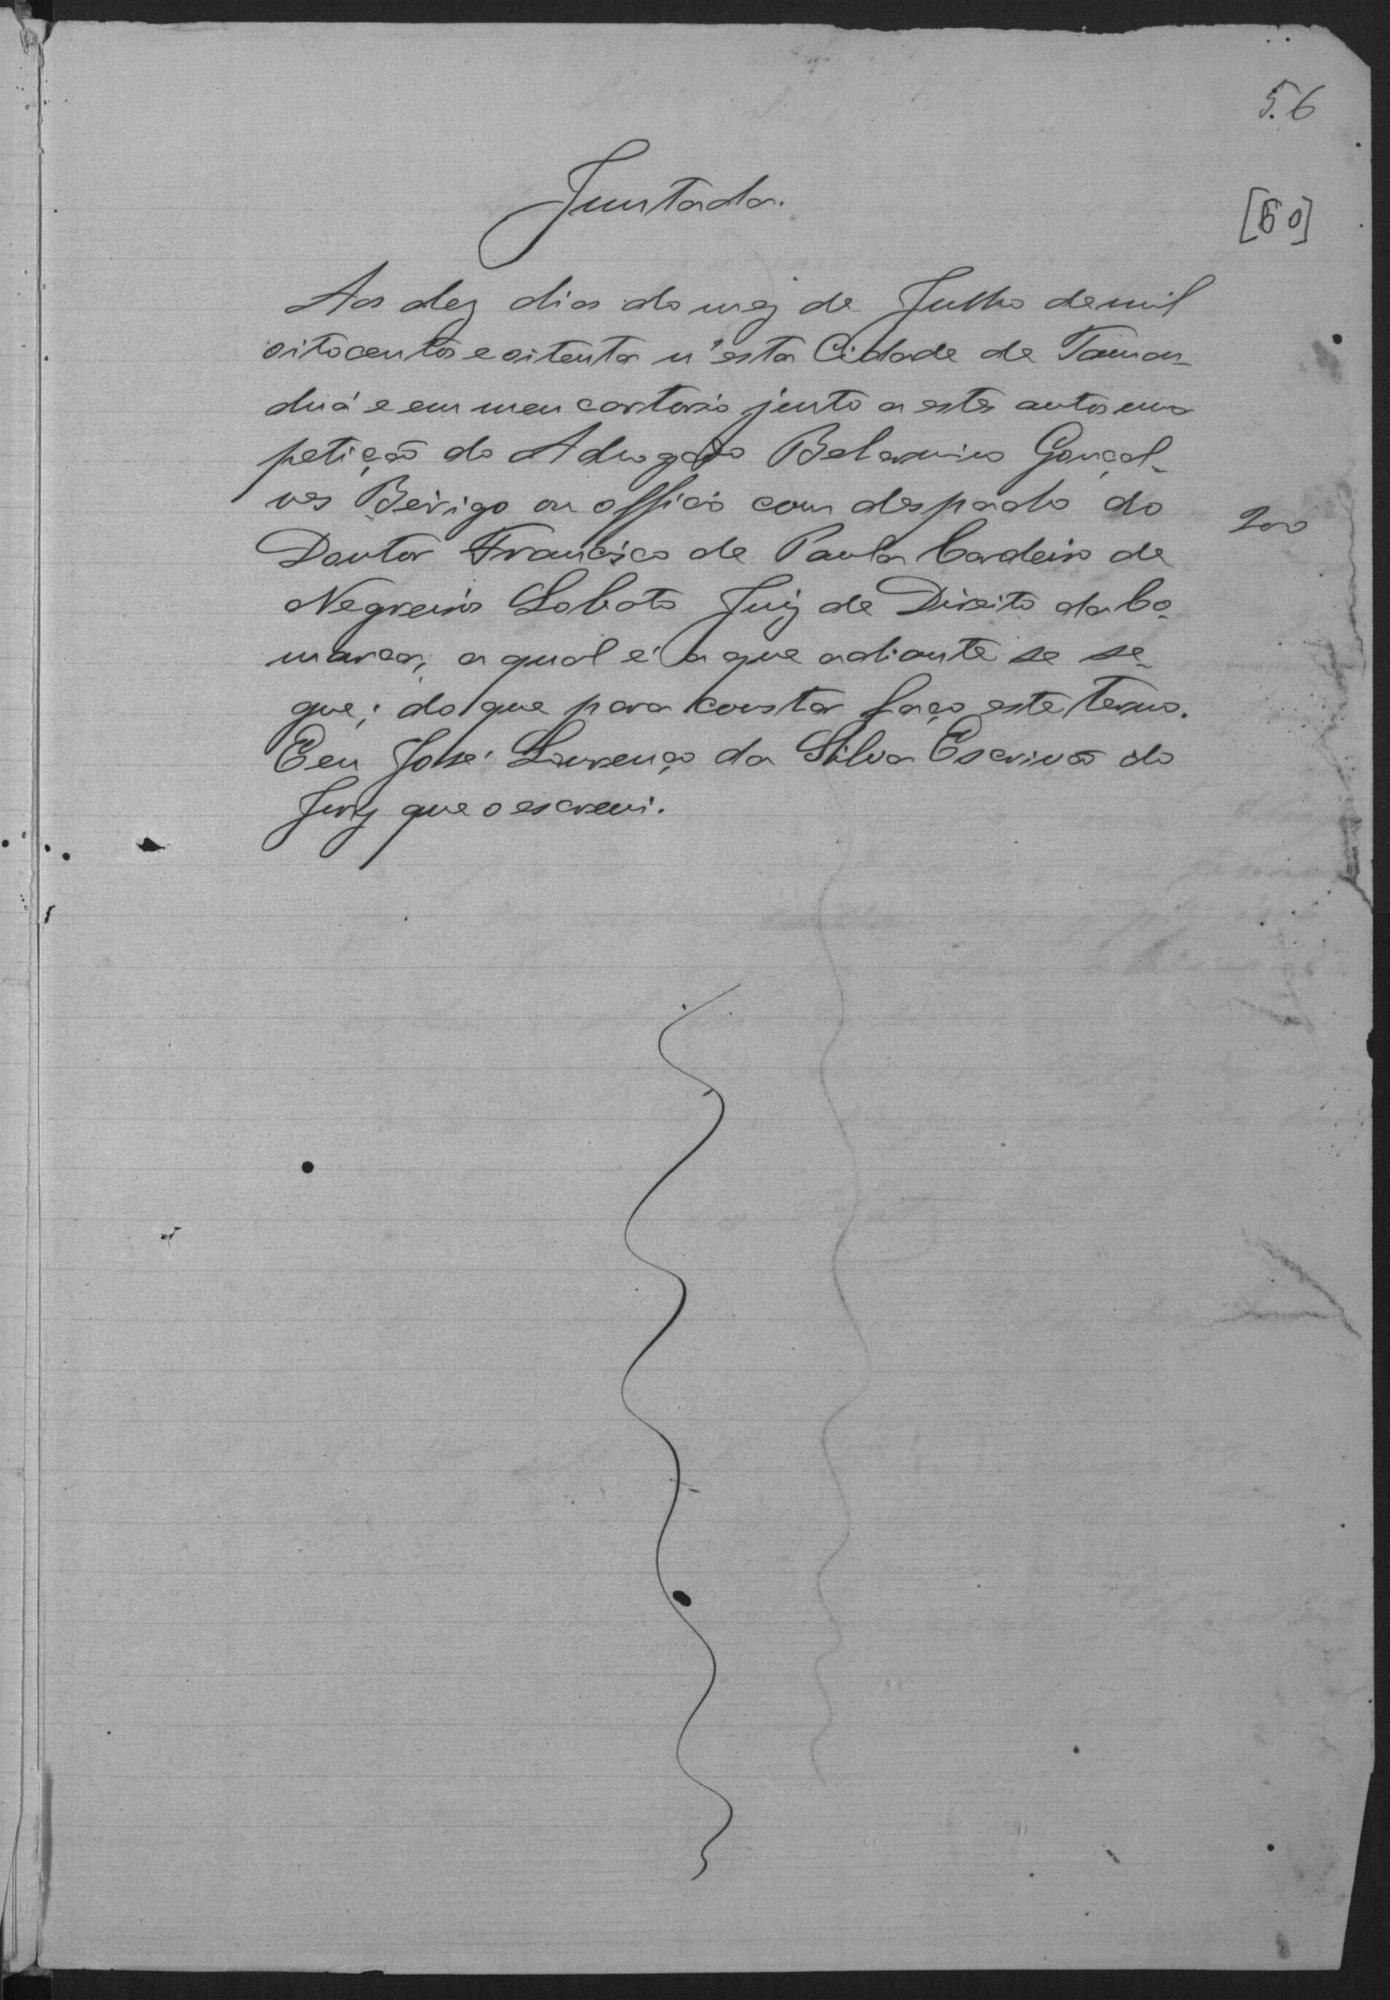 56
[60]
Juntada.
Aos dez dias do mez de Julho de mil
oitocentos e oitenta n'esta Cidade de Taman-
duá e em meu cartorio junto a estes autos uma
petição do Advogado Belarmino Gonçal-
ves Beirigo ou officio com despacho do
200
Doutor Francisco de Paula Cordeiro de
Negreiros Lobato Juiz de Direito da Co-
marca, a qual é a que adiante se se-
gue; do que para constar faço este termo.
Eeu José Lourenço da Silva Escrivão do
Jury que o escrevi.